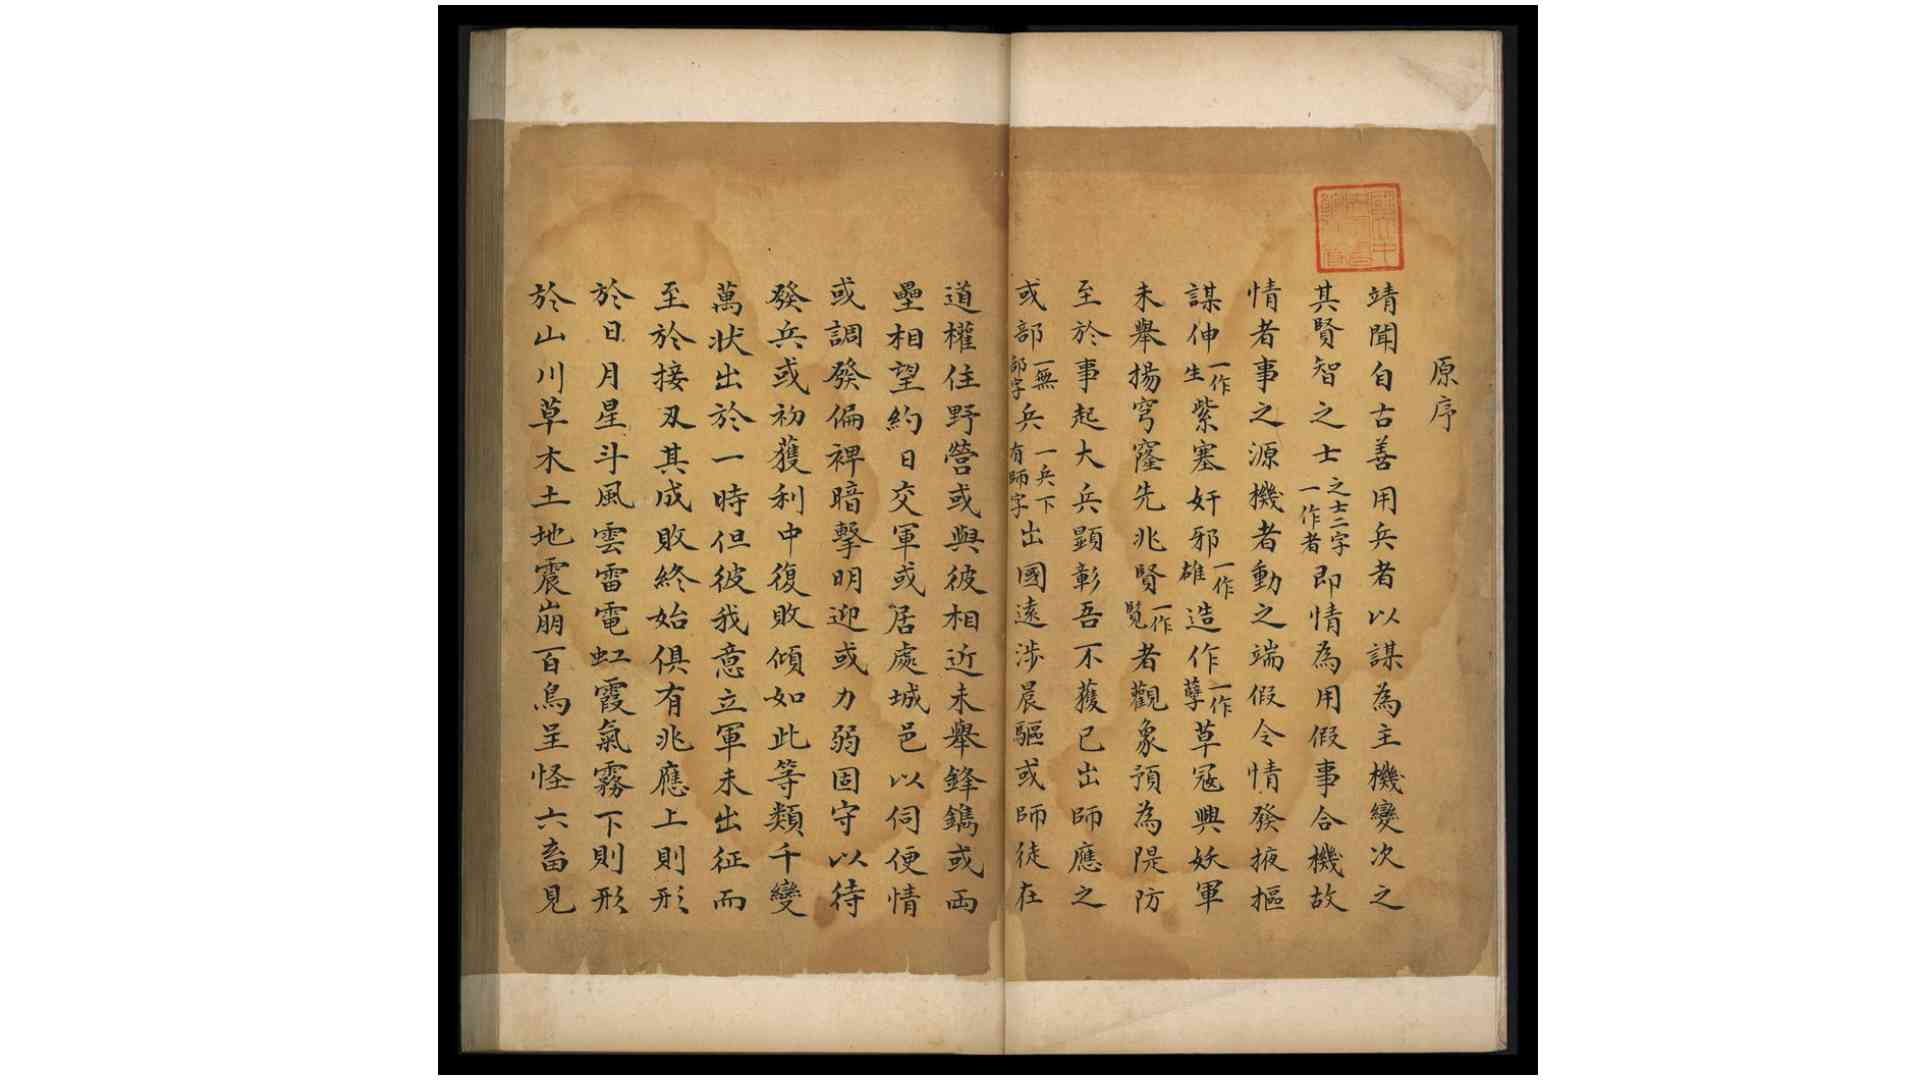 原序
靖聞自古善用兵者以謀為主機變次之
其賢智之士之士二字一作者即情為用假事合機故
情者事之源機者動之端假令情發掖樞
謀伸一作生紫塞奸邪一作雄造作一作孽草冦興妖軍
未舉揚穹窿先兆賢一作覽者觀象預為隄防
至於事起大兵顯彰吾不獲已出師應之
或部一無部字兵一兵下有師字出國遠涉晨驅或師徒在
道權住野營或與彼相近未舉鋒鐫或兩
壘相望約日交軍或居處城邑以伺便情
或調發偏裨暗擊明迎或力弱固守以待
發兵或初獲利中復敗傾如此等類千變
萬狀出於一時但彼我意立軍未出征而
至於接刄其成敗終始俱有兆應上則形
於日月星斗風雲雷電虹霞氣霧下則形
於山川草木土地震崩百鳥呈怪六畜見